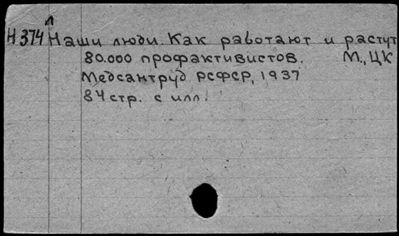 Н 374 Наши люди. Как работают и растут
80.000 профактивистов. М., ЦК
Медсантруд РСФСР, 1937
84 стр. с илл.